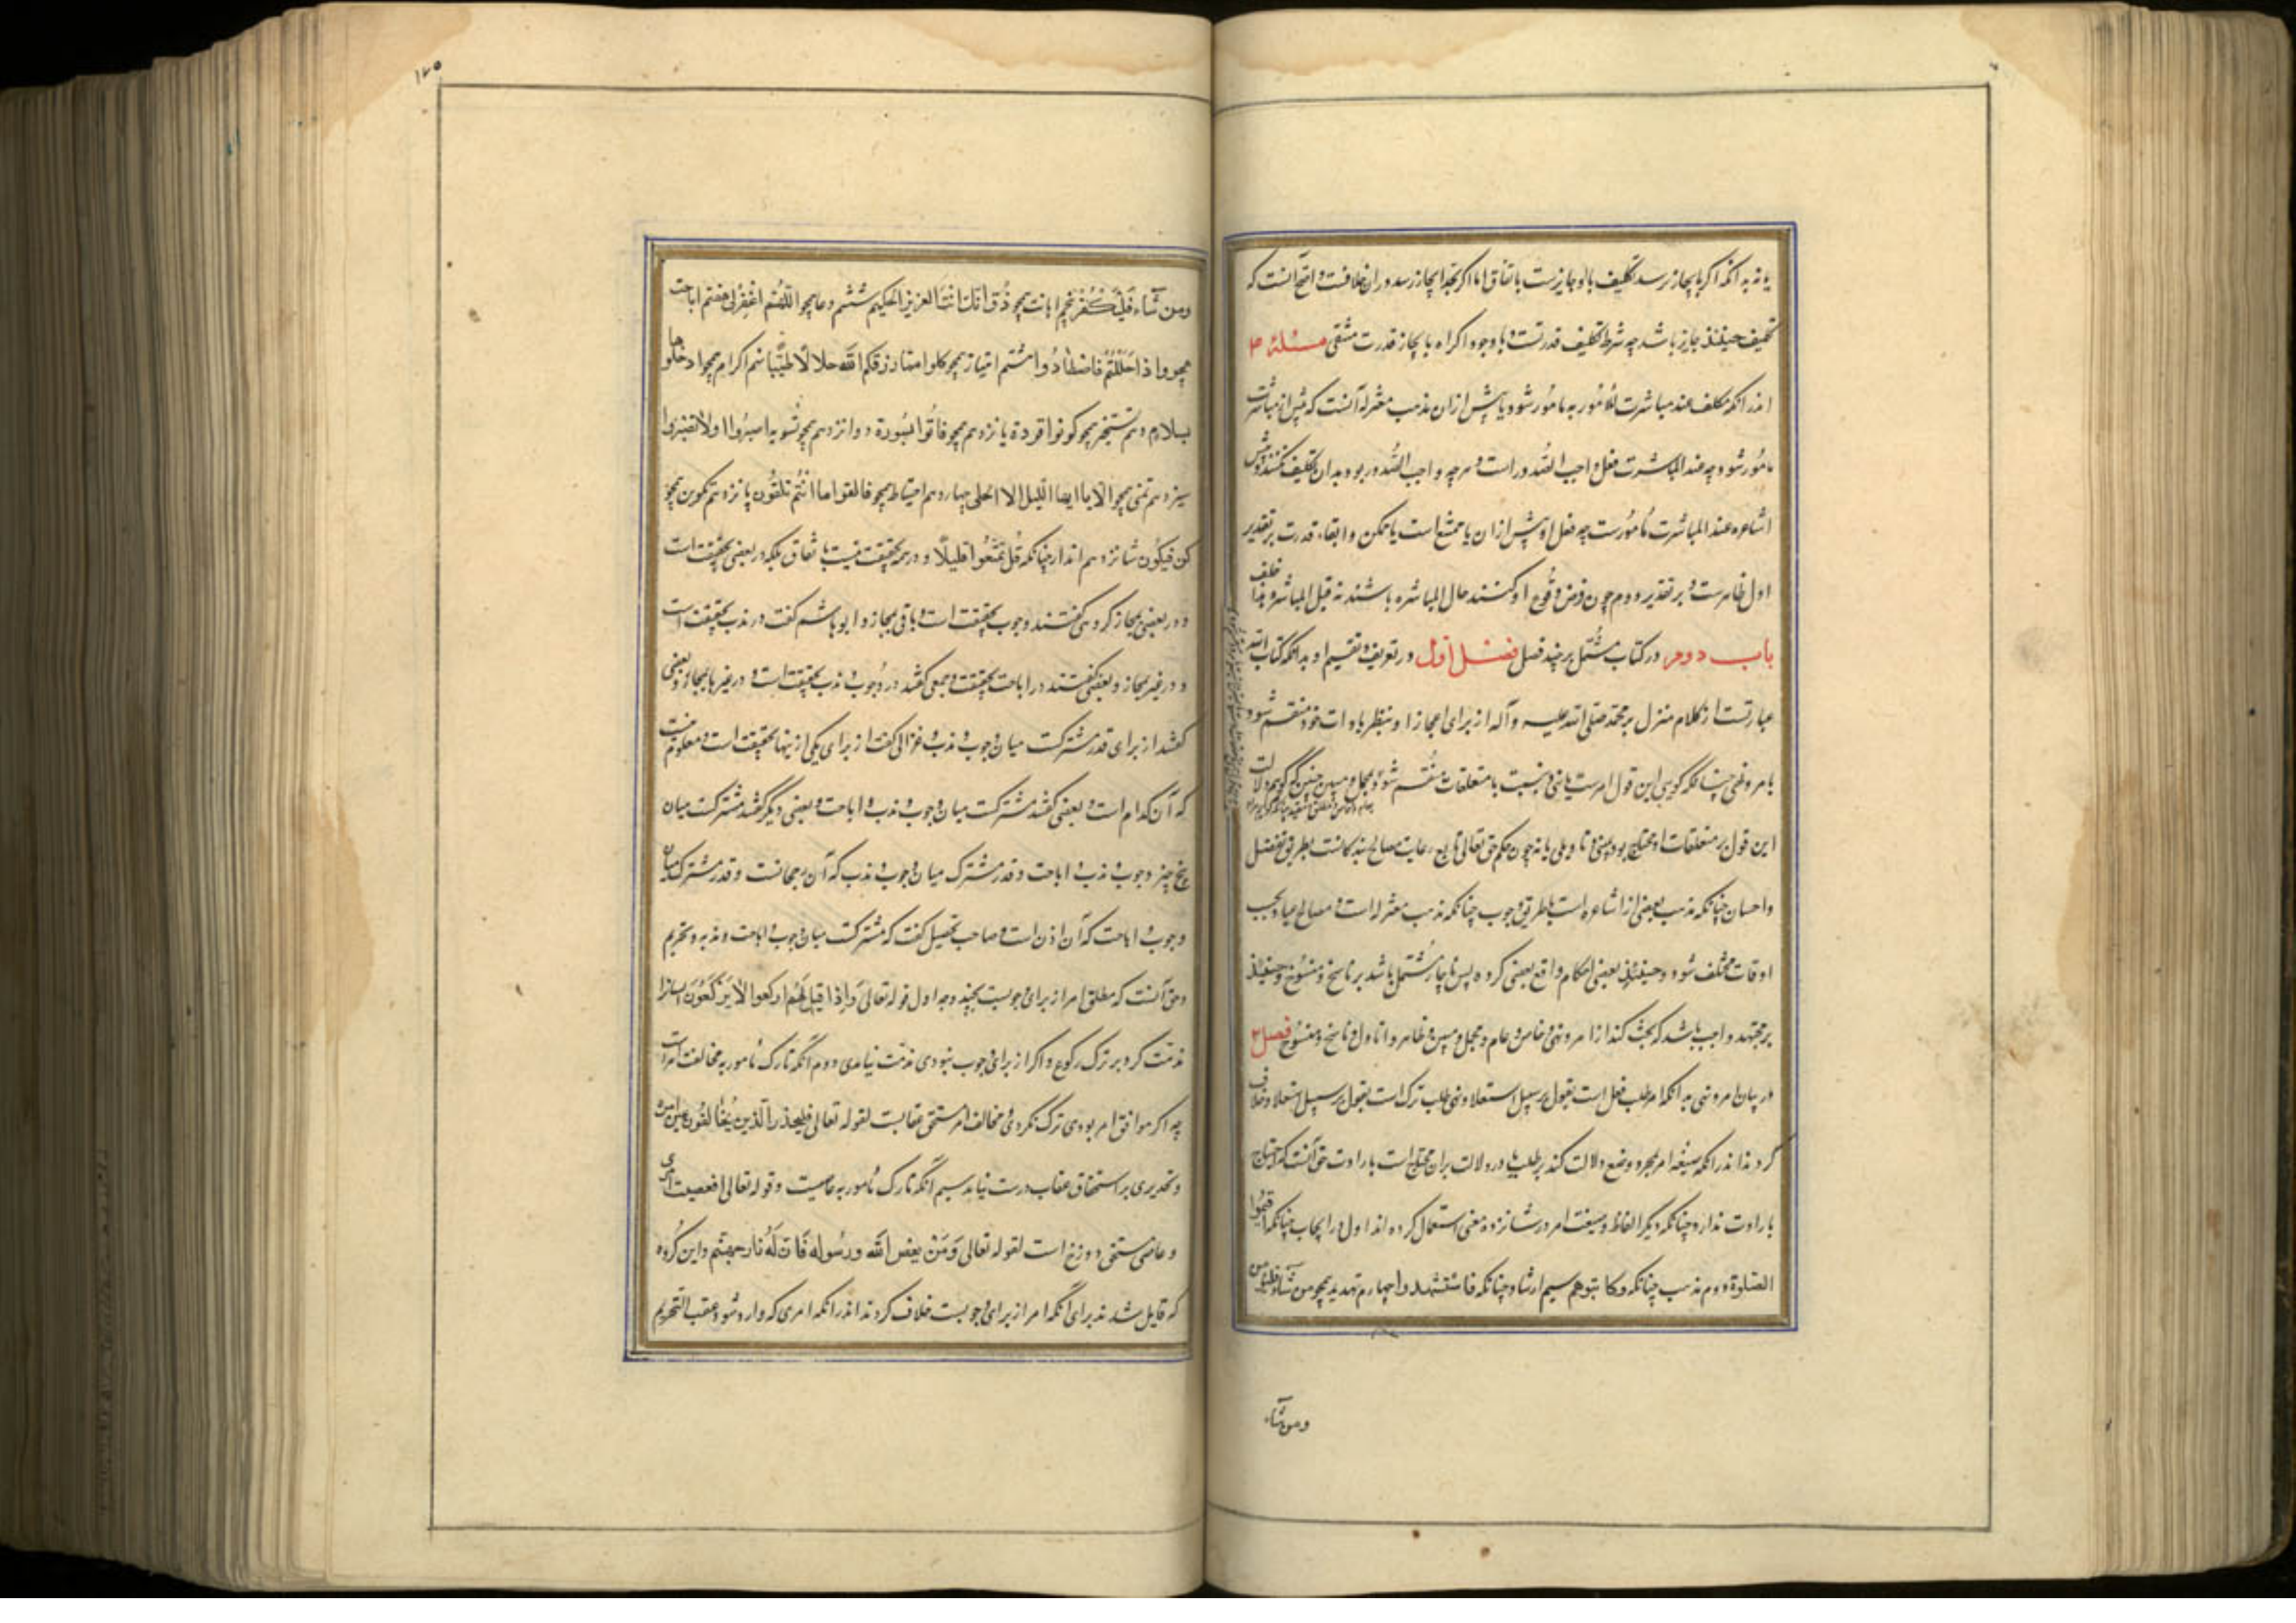 یا نه بدانکه اکر بایجاز رسد تکلیف بالو جایزست باتفاق اما اکر بحد ایجاز رسد دران خلافست و اصح آنست که
تکلیف حینئذ جایز باشد چه شرط تکلیف قدرتست و با وجود اکراه بایجاز قدرت منتفی مسئله
اندر انکه مکلف عند مباشرت مأمور به مامور شود یا پیش ازان مذهب معتزله آنست که پیش از مباشرت
مأمور شود چه عند المباشرت فعل واجب الصدور است و هرچه واجب الصدور بود بدان تکلیف نکنند و پیش
اشاعره عند المباشرت مأمورست چه فعل او پیش ازان یا ممتنع است یا ممکن و ابقاء قدرت بر تقدیر
اول ظاهرست و بر تقدیر دوم چون فرض وقوع او کنند حال المباشره باشند نه قبل المباشره و هذا خلف
باب دوم در کتاب مشتمل بر چند فصل فصل اول در تعریف و تقسیم او بدانکه کتاب الله
عبارتست از کلام منزل بر محمد صلی الله علیه و آله از برای اعجاز او بنظر با ذات خود منقسم شود
بامر و نهی چنانکه کویی این قول امرست یا نهی و بنسبت با متعلقات منقسم شود و بمجمل و مبین چنین که کوییم دلالت
این قول بر متعلقات او محتاج بود ببینی و تاویلی یا نه چون حکم حق تعالی تابع رعایت مصالح بندکانست بطریق تفضل
و احسان چنانکه مذهب بعضی از اشاعره است یا بطریق وجوب چنانکه مذهب معتزله است و مصالح عباد بحسب
اوقات مختلف شود و حینئذ بعضی احکام رافع بعضی کردد پس ناچار مشتمل باشد بر ناسخ و منسوخ و حینئذ
بر مجتهد واجب باشد که بحث کند از امر و نهی و خاص و عام و مجمل و مبین و ظاهر و ماول و ناسخ و منسوخ فصل
در بیان امر و نهی بدانکه امر طلب فعل است بقول بر سبیل استعلا و نهی طلب ترک است بقول بر سبیل استعلا و خلاف
کردند اندر انکه صیغه امر بمجرد وضع دلالت کند بر طلب یا در دلالت بران محتاج است بارادت حق آنست که احتیاج
بارادت ندارد چنانکه دیکر الفاظ و صیغت امر در شانزده معنی استعمال کرده اند اول در ایجاب چنانکه اقیموا
الصلوة دوم ندب چنانکه فکاتبوهم سیم ارشاد چنانکه فاستشهدوا چهارم تهدید همچو من شاء فلیؤمن
ومن شاء
۱۲۵
ومن شاء فلیکفر پنجم اهانت همچو ذق انک انت العزیز الحکیم ششم دعا همچو اللهم اغفرلی هفتم اباحت
همچو و اذا حللتم فاصطادوا هشتم امتیاز همچو کلوا مما رزقکم الله حلالا طیبا نهم اکرام همچو ادخلوها
بسلام دهم تسخیر همچو کونوا قردة یازدهم همچو فاتوا بسورة دوازدهم همچو تسویه اصبروا اولا تصبروا
سیزدهم تمنی همچو الا یا ایها اللیل الا انجلی چهاردهم احتیاط همچو فالقوا ما انتم تلقون پانزدهم تکوین همچو
کن فیکون شانزدهم انذار چنانکه قل تمتعوا قلیلا و در همه بحقیقت نیست باتفاق بلکه در بعضی بحقیقت است
و در بعضی بمجاز کروهی کفتند وجوب بحقیقت است و باقی بمجاز و ابو هاشم کفت در ندب بحقیقت است
و در غیر بمجاز و بعضی کفتند در اباحت بحقیقت و جمعی کفتند در وجوب و ندب بحقیقت است و در غیرها بمجاز و بعضی
کفتند از برای قدر مشترکست میان وجوب و ندب و غزالی کفت از برای یکی از ینها بحقیقت است و معلوم نیست
که آن کدام است و بعضی کفتند مشترکست میان وجوب و ندب و اباحت و بعضی دیکر کفتند مشترکست میان
پنج چیز وجوب و ندب و اباحت و قدر مشترک میان وجوب و ندب که آن رجحانست و قدر مشترک میان
وجوب و اباحت که آن اذن است و صاحب تحصیل کفت که مشترکست میان وجوب و اباحت و ندب و تحریم
و حق آنست که مطلق امر از برای وجوبست بچند وجه اول قوله تعالی و اذا قیل لهم ارکعوا لا یرکعون ایشانرا
مذمت کرد بر ترک رکوع و اکر از برای وجوب نبودی مذمت نیامدی دوم آنکه تارک مأمور به مخالف امرست
چه اکر موافق امر بودی ترک نکردی و مخالف امر مستحق عقابست لقوله تعالی فلیحذر الذین یخالفون عن امره
و تحذیر بر استحقاق عقاب درست نیاید سیم آنکه تارک مأمور به عاصیست و قوله تعالی افعصیت امری
و عاصی مستحق دوزخ است لقوله تعالی و من یعص الله و رسوله فان له نار جهنم و این کروه
که قایل شدند برای آنکه امر از برای وجوبست خلاف کردند اندر انکه امری که وارد شود عقب التحریم